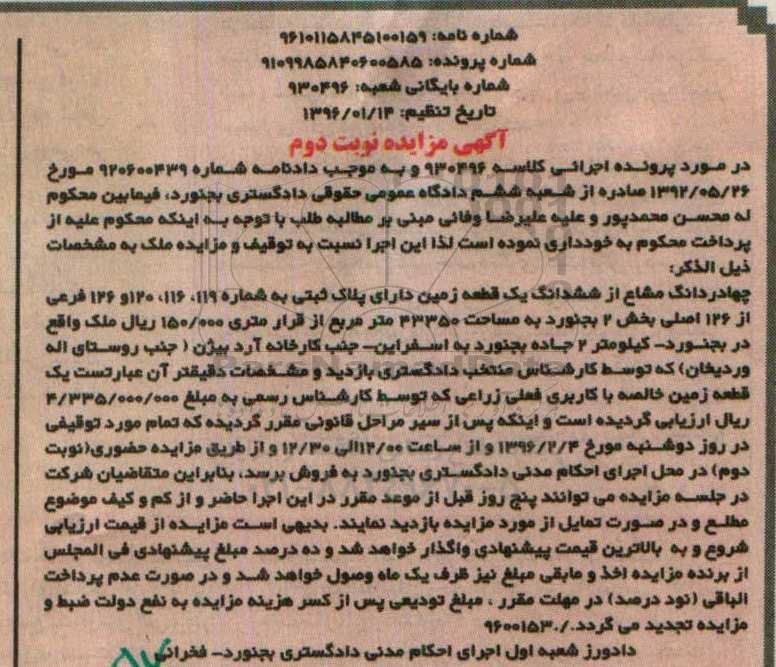 شماره نامه: ۹۶۱۰۱۱۵۸۴۵۱۰۰۱۵۹
شماره پرونده: ۹۱۰۹۹۸۵۸۴۰۶۰۰۵۸۵
شماره بایگانی شعبه: ۹۳۰۴۹۶
تاریخ تنظیم: ۱۳۹۶/۰۱/۱۴
آگهی مزایده نوبت دوم
در مورد پرونده اجرائی کلاسه ۹۳۰۴۹۶ و به موجب دادنامه شماره ۹۲۰۶۰۰۴۳۹ مورخ
۱۳۹۲/۰۵/۲۶ صادره از شعبه ششم دادگاه عمومی حقوقی دادگستری بجنورد، فیمابین محکوم
له محسن محمدپور و علیه علیرضا وفائی مبنی بر مطالبه طلب با توجه به اینکه محکوم علیه از
پرداخت محکوم به خودداری نموده است لذا این اجرا نسبت به توقیف و مزایده ملک به مشخصات
ذیل الذکر:
چهاردانگ مشاع از ششدانگ یک قطعه زمین دارای پلاک ثبتی به شماره ۱۱۹، ۱۱۶، ۱۲۰و ۱۲۶ فرعی
از ۱۲۶ اصلی بخش ۲ بجنورد به مساحت ۴۳۳۵۰ متر مربع از قرار متری ۱۵۰/۰۰۰ ریال ملک واقع
در بجنورد- کیلومتر ۲ جاده بجنورد به اسفراین- جنب کارخانه آرد بیژن ( جنب روستای اله
وردیخان) که توسط کارشناس منتخب دادگستری بازدید و مشخصات دقیقتر آن عبارتست یک
قطعه زمین خالصه با کاربری فعلی زراعی که توسط کارشناس رسمی به مبلغ ۴/۳۳۵/۰۰۰/۰۰۰
ریال ارزیابی گردیده است و اینکه پس از سیر مراحل قانونی مقرر گردیده که تمام مورد توقیفی
در روز دوشنبه مورخ ۱۳۹۶/۲/۴ و از ساعت ۱۲/۰۰الی ۱۲/۳۰ و از طریق مزایده حضوری(نوبت
دوم) در محل اجرای احکام مدنی دادگستری بجنورد به فروش برسد، بنابراین متقاضیان شرکت
در جلسه مزایده می توانند پنج روز قبل از موعد مقرر در این اجرا حاضر و از کم و کیف موضوع
مطلع و در صورت تمایل از مورد مزایده بازدید نمایند. بدیهی است مزایده از قیمت ارزیابی
شروع و به بالاترین قیمت پیشنهادی واگذار خواهد شد و ده درصد مبلغ پیشنهادی فی المجلس
از برنده مزایده اخذ و مابقی مبلغ نیز ظرف یک ماه وصول خواهد شد و در صورت عدم پرداخت
الباقی (نود درصد) در مهلت مقرر ، مبلغ تودیعی پس از کسر هزینه مزایده به نفع دولت ضبط و
مزایده تجدید می گردد./.۹۶۰۰۱۵۳
دادورز شعبه اول اجرای احکام مدنی دادگستری بجنورد- فخرانی